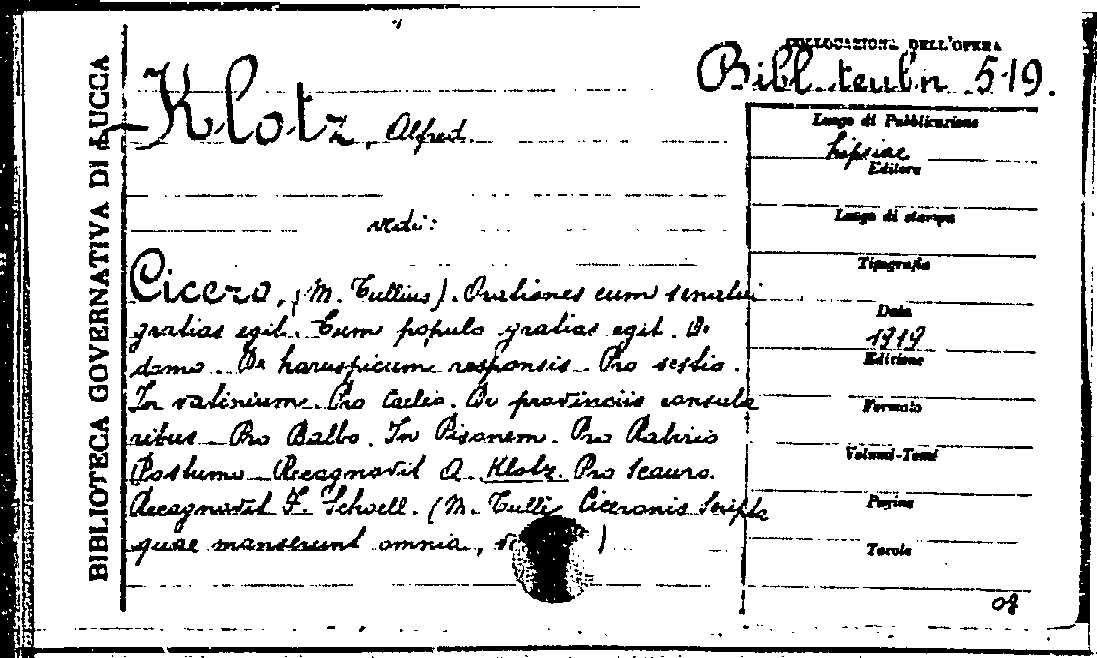 BIBLIOTECA GOVERNATIVA DI LUCCA
COLLOCAZIONE DELL'OPERA
Bibl. teubn 519.
Klotz, Alfred.
vedi:
Cicero, (M. Tullius). Orationes cum senatui
gratias egit. Cum populo gratias egit. De
domo. De haruspicum responsis. Pro sestio.
In vatinium. Pro Caelio. De provinciis consula
ribus. Pro Balbo. In Pisonem. Pro Rabirio
Postumo. Recognovit A. Klotz. Pro Scauro.
Recognovit F. Schoell. (M. Tulli Ciceronis Scripta
quae manserunt omnia, )
Luogo di Pubblicazione
Lipsiae
Editore
Luogo di stampa
Tipografia
Data
1919
Edizione
Formato
Volumi-Tomi
Pagine
Tavole